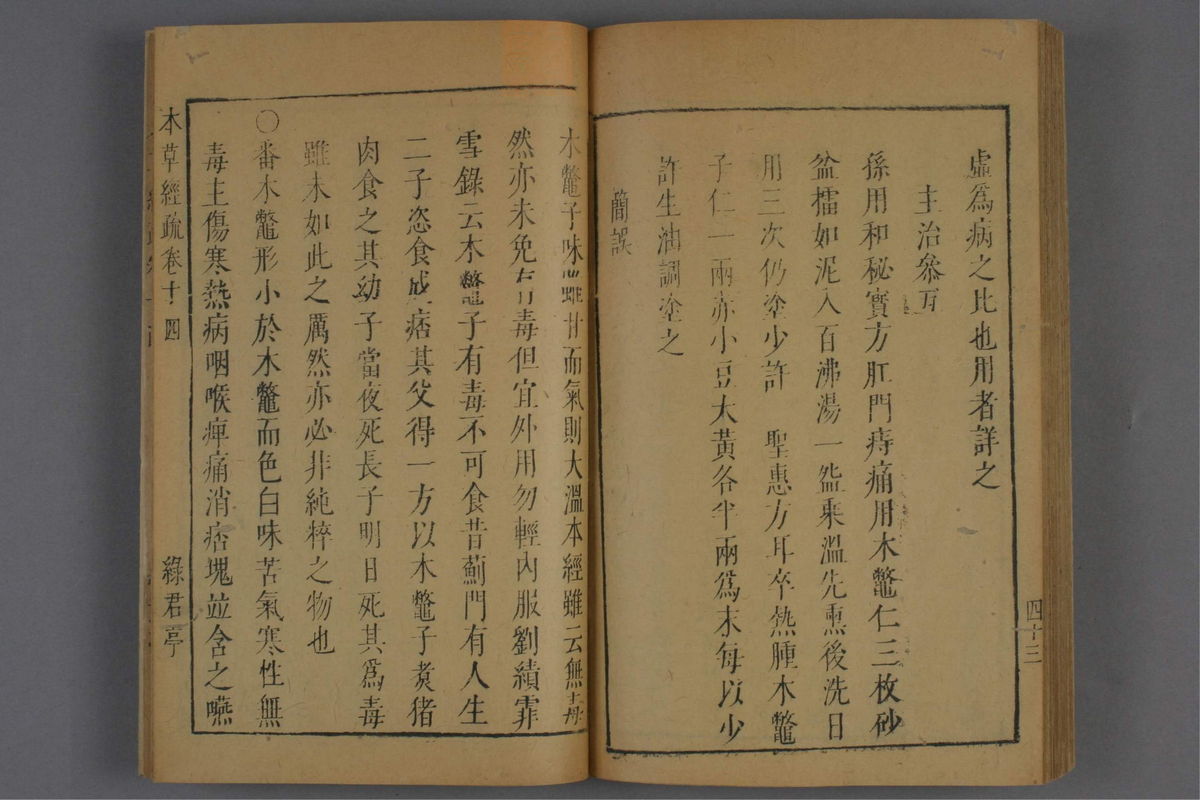 虛爲病之比也用者詳之
主治參互
孫用和秘寶方肛門痔痛用木鼈仁三枚砂
盆擂如泥入百沸湯一盌乘溫先熏後洗日
用三次仍塗少許　聖惠方耳卒熱腫木鼈
子仁一兩赤小豆大黃各半兩爲末每以少
許生油調塗之
簡誤
四十三
木鼈子味雖甘而氣則大溫本經雖云無毒
然亦未免有毒但宜外用勿輕內服劉績霏
雪錄云木鼈子有毒不可食昔薊門有人生
二子恣食成痞其父得一方以木鼈子煑猪
肉食之其幼子當夜死長子明日死其爲毒
雖未如此之厲然亦必非純粹之物也
〇番木鼈形小於木鼈而色白味苦氣寒性無
毒主傷寒熱病咽喉痺痛消痞塊竝含之嚥
本草經疏卷十四　綠君亭